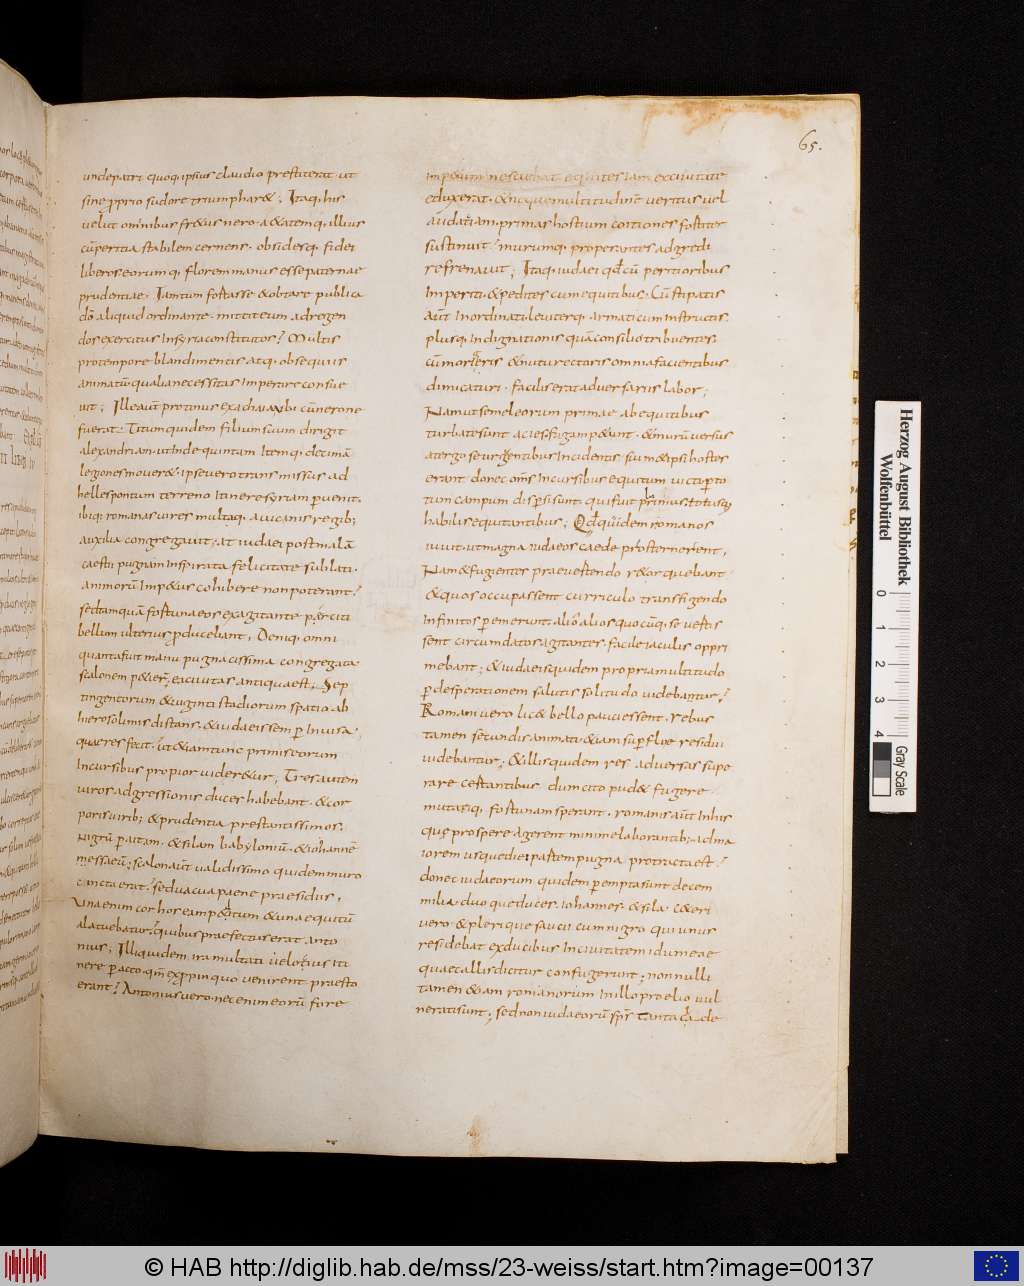 65.
undepatri quoq; ipsius claudio prestiterat ut
sine proprio sudore triumphar&. Itaq; his
uelut omnibus fr&us nero. a&atemq; illius
cũ peritia stabilem cernens. obsidesq; fidei
liberos eorumq; florem manus esse paternae
prudentiae. Iam tum fortasse & obtare publica
do aliquid ordinante. mittit eum ad regen
dos exercitus In syria constitutos; Multis
pro tempore blandimentis atq; obsequiis
animatũ qualia necessitas Imperire consue
uit; Ille aut protinus ex achaia ubi cũ nerone
fuerat. Titum quidem filium suum dirigit
alexandriam. ut Inde quintam Itemq; decimã
legiones mouer&. ipse uero transmissus ad
hellespontum terreno Itinere syriam peruenit.
ibiq; romanas uires multaq; a uicanis regib;
auxilia congregauit; at iudaei post malã
caestii pugnam Insperata felicitate sublati.
animorũ Imp&us cohibere non poterant;
sed tamquã fortuna eos exagitante percitι
bellum ulterius producebant; Deniq; omni
quanta fuit manu pugnacissima congregata
scalonem p&er&; ea ciuitas antiqua est; Sep
tingentorum & uiginti stadiorum spatio ab
hierosolimis distans. & iudaeis semper Inuisa
quae res fecit. ut & iam tunc primis eorum
Incursibus propior uider&ur; Tres autem
uiros adgressionis duces habebant. & cor
poris uirib; & prudentia prestantissimos;
nigrũ peraitam. & silam babyloniũ. & iohannẽ
messaeũ; scalon aut ualidissimo quidem muro
cincta erat. sed uacua paene praesidiis;
Vna enim cohors eam p&ditum & una equitũ
ala tuebatur. quibus praefectus erat anto
nius; Illi quidem ira multati uelotius iti
nere peracto. qm̃ ex propinquo uenirent praesto
erant; Antonius uero. nec enim eorũ fore
Imp&um nesciebat equites iam ex ciuitate
eduxerat. & neque multitudinẽ ueritus uel
audatiam. primas hostium cortiones fortiter
sustinuit; murumq; properantes adgredi
refrenauit; Itaq; iudaei qd cũ peritioribus
Imperiti. & pedites cum equitibus. Cũ stipatis
aut Inordinati leuiterq; armati cum Instructis
plusq; Indignationis quã consilio tribuentes
cũ morigeris & nutu rectoris omnia facientibus
dimicaturi. facilis erat aduersariis labor;
Nam ut semel eorum primae ab equitibus
turbate sunt acies fugam p&unt. & murũ uersus
a tergo se urgentibus Incidentes suim& ipsi hostes
erant. donec om̃s Incursibus equitum uicta per to
tum campum dispersi sunt. qui fuit plurimus. totusq;
habilis equitantibus; Qd quidem romanos
iuuit. ut magna iudaeos caede prosternerent;
Nam & fugientes praeuertendo r&orquebant
& quos occupassent curriculo transfigendo
Infinitos peremerunt. alio alios quocũq; se uertis
sent circumdatos agitantes. facile iaculis oppri
mebant; & iudaeis quidem propria multitudo
per desperationem salutis solitudo uidebatur;
Romani uero lic& bello pauci essent. rebus
tamen secundis animati. & iam superfluere sibi
uidebantur; & illis quidem res aduersas supe
rare certantibus dum cito pud& fugere
mutariq; fortunam sperant. romanis aut In his
que prospere agerent minime laborantib; ad ma
iorem usque diei partem pugna protracta est;
donec iudaeorum quidem perempta sunt decem
milia. duoque duces. iohannes. & sila. c&eri
uero & plerique saucii cum nigro qui unus
residebat ex ducibus In ciuitatem idumeae
quae callis dicitur confugerunt; non nulli
tamen & iam romanorum In illo proelio uul
nerati sunt; sed non iudaeorũ sps tanta cla de
Herzog August Bibliothek
Wolfenbüttel
0 1 2 3 4
Gray Scale
© HAB http://diglib.hab.de/mss/23-weiss/start.htm?image=00137